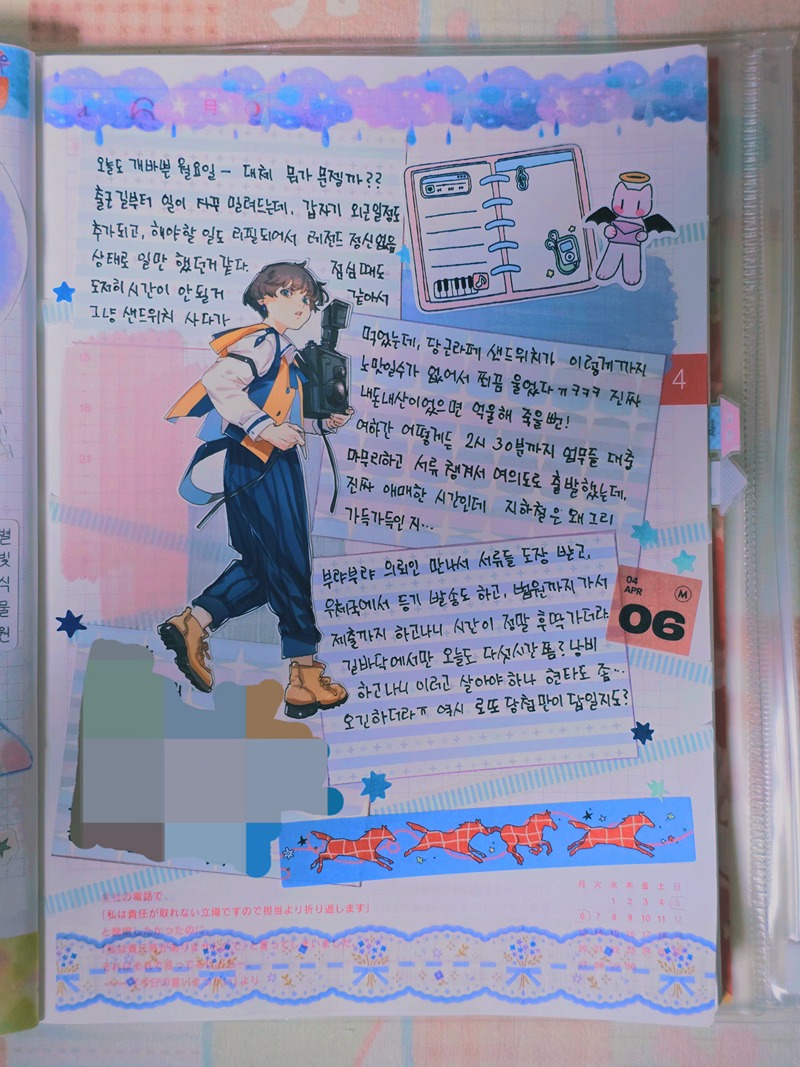 6 月
오늘도 개바쁜 월요일 - 대체 뭐가 문젤까??
출근길부터 일이 자꾸 밀려드는데, 갑자기 외근일정도
추가되고, 해야할 일도 리필되어서 레전드 정신없음
상태로 일만 했던거같다. 점심때도
도저히 시간이 안될거 같아서
그냥 샌드위치 사다가
먹었는데, 당근라페 샌드위치가 이렇게까지
노맛일수가 없어서 쬐끔 울었다ㅠㅋㅋㅋ 진짜
내돈내산이었으면 억울해 죽을뻔!
여하간 어떻게든 2시 30분까지 업무들 대충
마무리하고 서류 챙겨서 여의도로 출발했는데,
진짜 애매한 시간인데 지하철은 왜그리
가득가득인지...
부랴부랴 의뢰인 만나서 서류들 도장 받고,
우체국에서 등기 발송도 하고, 법원까지 가서
제출까지 하고나니 시간이 정말 후딱가더라
길바닥에서만 오늘도 다섯시간쯤을 낭비
하고나니 이러고 살아야하나 현타도 좀...
오긴하더라ㅠ 역시 로또 당첨만이 답일지도?
15
18
21
4
04
APR
M
06
별
빛
식
물
원
の電話で、
「私は責任が取れない立場ですので担当より折り返します」
月 火 水 木 金 土 日
1 2 3 4 5
6 7 8 9 10 11 12